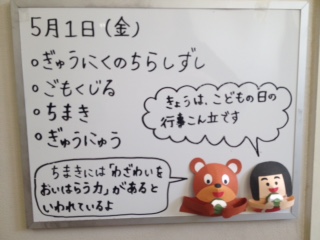 5月1日(金)
○ぎゅうにくのちらしずし
○ごもくじる
○ちまき
○ぎゅうにゅう
きょうは、こどもの日の
行事こん立です
ちまきには「わざわいを
おいはらう力」があると
いわれているよ